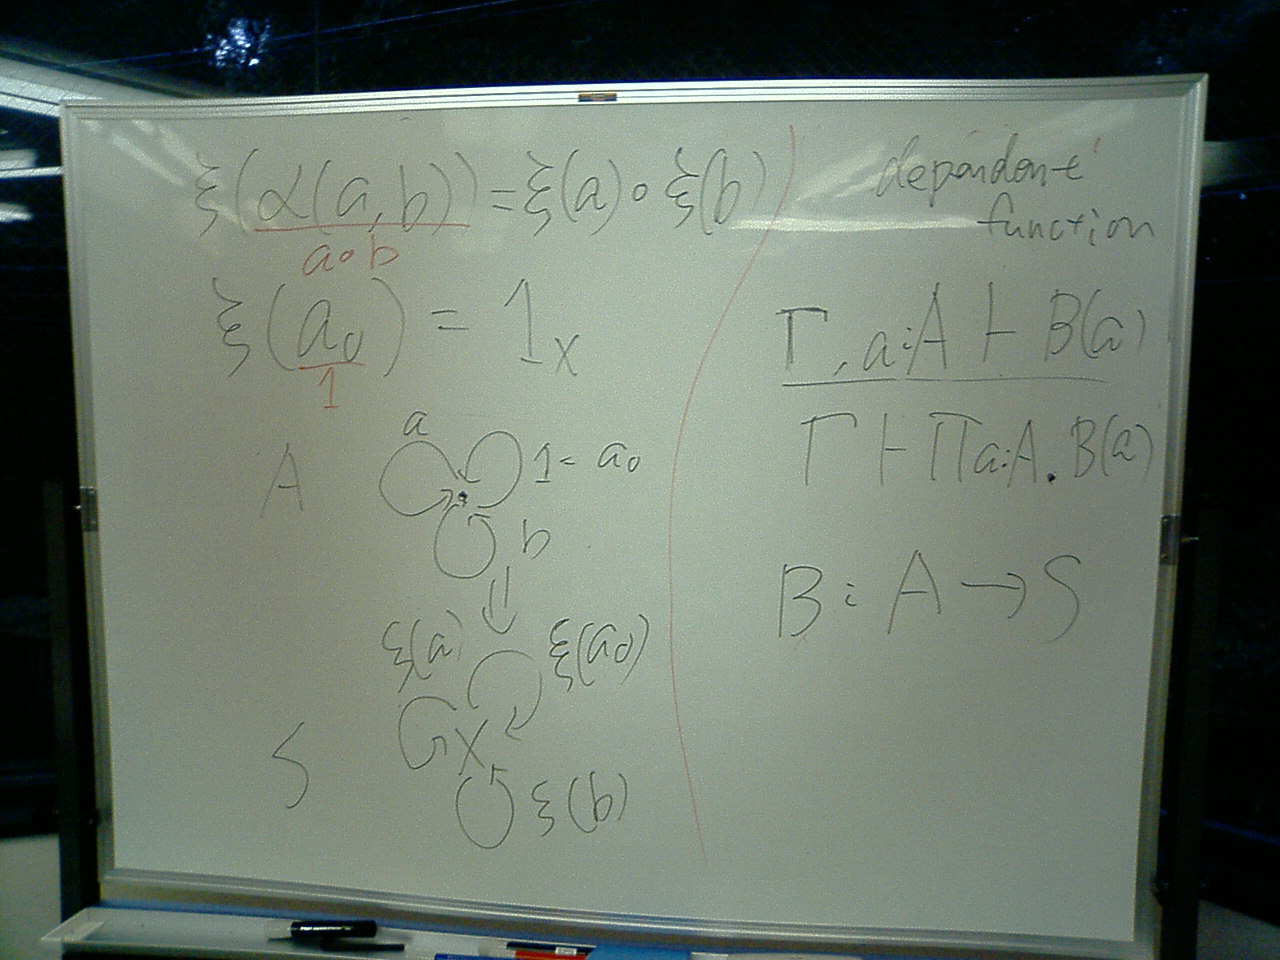 ξ(α(a,b)) = ξ(a)∘ξ(b)
a∘b
ξ(a₀) = 1ₓ
1
A
a
1 = a₀
b
⇓
ξ(a)
ξ(a₀)
S
X
ξ(b)
dependent
function
Γ, a:A ⊢ B(a)
Γ ⊢ Πa:A. B(a)
B : A → S